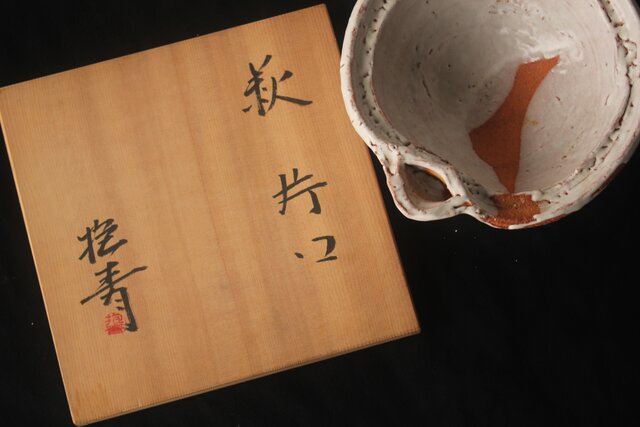 萩 片口
抱青